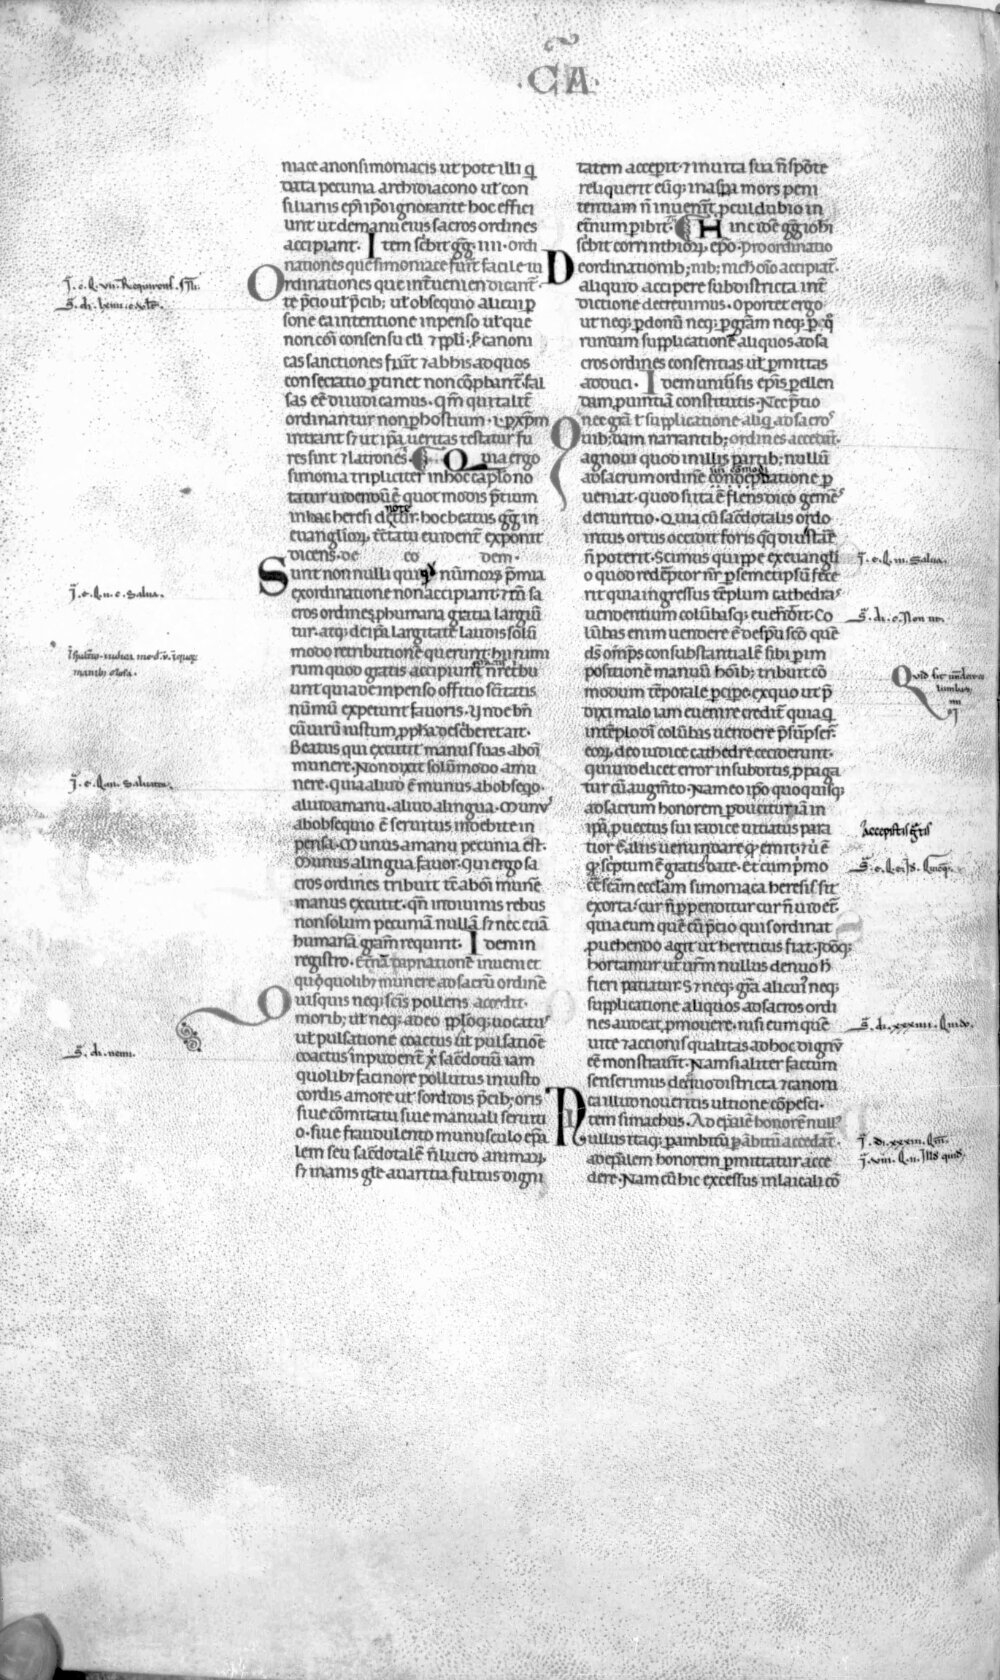 ·CA·
mace a non simoniacis ut pote illi q̄
data pecunia archidiacono ut con
siliariis ep̄i ip̄o ignorante hoc effici
unt ut de manu eius sacros ordines
accipiant· Item sc̄bit gg̅· iiii· ordi
nationes que simoniace fiu̅t facile iu
Ordinationes que int̅ueniente dicant̅·
te p̄cio ut p̄cib; ut̅ obsequio alicui p̱
sone ea intentione inpenso ut̅ que
non co̅i consensu cl̅i ⁊ ppl̅i· s̅ canoni
cas sanctiones fiu̅t ⁊ ab his ad quos
consecratio p̱tinet non co̅p̱bant̅· fal
sas ee̅ diiudicamus· Qm̅ qui talit̅
ordinantur non p̱ hostium· i· p̱ xp̅m
intrant s; ut ip̄a ueritas testatur fu
res sunt ⁊ latrones· Quia ergo
simonia tripliciter in hoc cap̄lo no
tatur uidendu̅ e̅ quot modis p̄tium
in hac heresi dicitur· hoc beatus gg̅ in
euangliox̨ t̅ctatu euident̅ exponit
dicens· de eo dem·
Sunt nonnulli qui nu̅mox̨ p̄mia
ex ordinatione non accipiunt ⁊ tn̅ sa
cros ordines p̱ humana gratia largiu̅
tur· atq; de ip̄a largitate laudis solu̅
modo retributione̅ querunt· hi nimi
rum quod gratis acceptum n̅ retbu
unt quia de inpenso offitio sc̄itatis
nu̅mu̅ expetunt fauoris· Vnde bn̅
cu̅ uiru̅ iustum ꝓpħa describeret ait·
Beatus qui excutit manus suas ab o̅i
munere· Non dixit solu̅modo a mu
nere· quia aliud e̅ munus ab obseqo·
aliud a manu· aliud a lingua· Munꝰ
ab obsequio e̅ seruitus indebite in
pensa· Munus a manu pecunia est·
Munus a lingua fauor· Qui ergo sa
cros ordines tribuit tc̅ ab o̅i mun̅e
manus excutit· qn̅ in diuinis rebus
non solum pecunia̅ nulla̅ s; nec etia̅
humana̅ gr̅am requirit· Idem in
quoquolib; munere ad sacru̅ ordine̅
Quisquis neq; sc̄is pollens accedit·
morib; ut neq; a deo p̄plo q; uocatuꝰ
ut pulsatione coactus ut̅ pulsatio̅e
coactus inpudent̅ x̅ sacerdotiu̅ iam
quolib; facinore pollutus iniusto
cordis amore ut̅ sordidis p̄cib; oris
siue co̅mitatu siue manuali seruiti
o· siue fraudulento munusculo ep̅a
lem seu sac̅dotale̅ n̅ lucro animax̨
s; inanis gl̅e auaritia fultus digni
tatem accepit ⁊ in uita sua n̅ spo̅te
reliquerit eu̅q; in asp̱a mors peni
tentiam n̅ inuenit̅ p̱cul dubio in
et̅num p̱ibit· Hinc ide̅ gg̅
sc̄bit corrinthiox̨ ep̄o· pro ordinatio
De ordinationib; nib; nichoi̅o accipiat̅·
aliquid accipere sub districta int̅
dictione decreuimus· Oportet ergo
ut neq; p̱ donu̅ neq; p̱ gr̅am neq; p̱ q̅
rundam supplicatione̅ aliquos ad sa
cros ordines consentias ut̅ p̱mittas
adduci· Idem uniu̅sis ep̄is p̱ ellen
dam p̱uintia̅ constitutis· Nec p̄tio
nec gr̅a ⁊ supplicatione aliq̅ ad sacroꝰ
quib;dam narrantib; ordines accedat̅·
Agnoui quod in illis partib; nullu̅
ad sacrum ordine̅
ueniat· quod si ita e̅ flens dico gem̅eꝰ
denuntio· Quia cu̅ sac̅dotalis ordo
intus ortus occidit foris q̅q̅ diu sta̅e
n̅ poterit· Scimus quippe ex euangli
o quod rede̅ptor nr̅ p̱ semetipsu̅ fece
rit quia ingressus te̅plum cathedraꝰ
uendentium colu̅basq; euertit· Co
lu̅bas enim uendere e̅ de sp̅u sc̅o que̅
ds̅ om̅ps consubstantiale̅ sibi p̱ im
positione̅ manuu̅ ho̅ib; tribuit co̅
modum te̅porale p̱cipe· ex quo ut p̄
dixi malo iam euenire credit̅ quia q̅
in te̅plo di̅ colu̅bas uendere p̄su̅pser̅
eox̨ deo iudice cathedre ceciderunt·
Qui uidelicet error in subditis ꝓpaga
tur cu̅ augm̅to· Nam eo ip̄o quo quisq;
ad sacrum honorem p̱ducitur ia̅ in
ip̄a p̱uectus sui radice uitiatus para
tior e̅ aliis uenundare q̅ emit· ⁊ u̅ e̅
q̅ sc̄ptum e̅ gratis date· Et cum p̱mo
cc̅ sc̄am eccl̅am simoniaca heresis sit
exorta· cur n̅ p̱penditur cur n̅ uidet̅·
quia eum que̅ cu̅ p̄tio quis ordinat
ꝓuehendo agit ut hereticus fiat· Idc̅oq;
hortamur ut ur̅m nullus denuo h̅
fieri patiatur· S; neq; gr̅a alicuiꝰ neq;
supplicatione aliquos ad sacros ordi
nes audeat p̱mouere· nisi eum que̅
uite ⁊ accionis qualitas ad hoc dignu̅
ee̅ monstrau̅it· Nam si aliter factum
senserimus de quo districta ⁊ canoni
ca illud noueritis ultione co̅pesci·
Item simachus· Ad ep̄ale̅ honore̅ nullꝰ
Nullus itaq; p̱ ambitu̅
ad ep̄alem honorem p̱mittatur acce
dere· Nam cu̅ hic excessus in laicali co̅
Accepistis gr̅tis